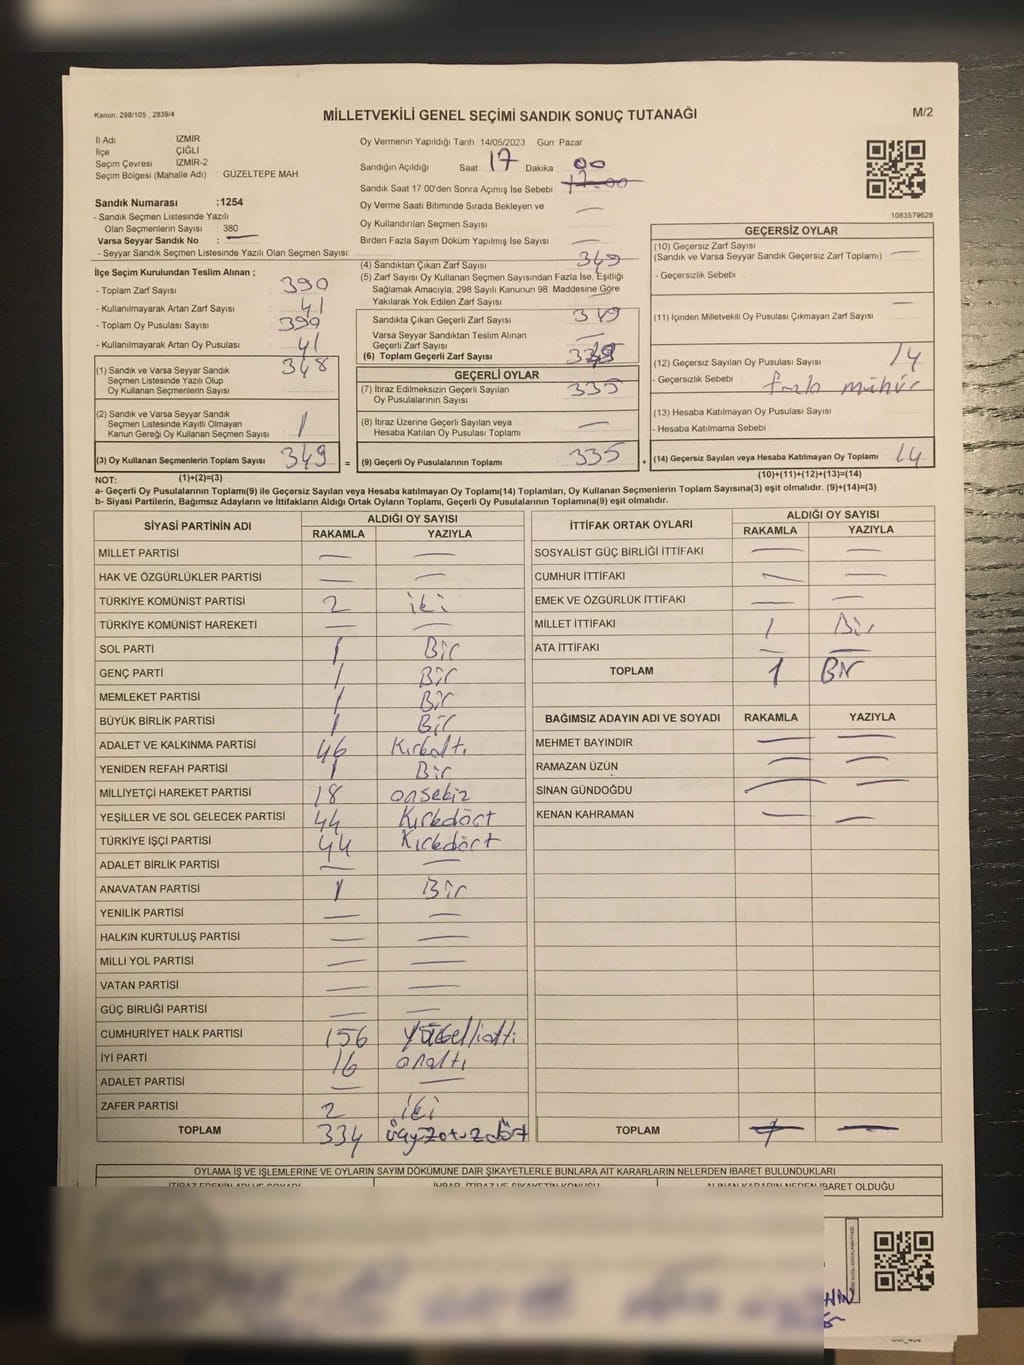 Kanun: 298/105 , 2839/4
MİLLETVEKİLİ GENEL SEÇİMİ SANDIK SONUÇ TUTANAĞI
M/2
İl Adı : İZMİR
İlçe : ÇİĞLİ
Seçim Çevresi : İZMİR-2
Seçim Bölgesi (Mahalle Adı) : GÜZELTEPE MAH
Sandık Numarası :1254
- Sandık Seçmen Listesinde Yazılı
Olan Seçmenlerin Sayısı : 380
Varsa Seyyar Sandık No :
- Seyyar Sandık Seçmen Listesinde Yazılı Olan Seçmen Sayısı:
İlçe Seçim Kurulundan Teslim Alınan ;
- Toplam Zarf Sayısı : 390
- Kullanılmayarak Artan Zarf Sayısı : 41
- Toplam Oy Pusulası Sayısı : 390
- Kullanılmayarak Artan Oy Pusulası : 41
(1) Sandık ve Varsa Seyyar Sandık Seçmen Listesinde Yazılı Olup Oy Kullanan Seçmenlerin Sayısı 348
(2) Sandık ve Varsa Seyyar Sandık Seçmen Listesinde Kayıtlı Olmayan Kanun Gereği Oy Kullanan Seçmen Sayısı 1
(3) Oy Kullanan Seçmenlerin Toplam Sayısı 349
Oy Vermenin Yapıldığı Tarih 14/05/2023 Gün Pazar
Sandığın Açıldığı Saat 17 Dakika : 00
Sandık Saat 17 00'den Sonra Açımış İse Sebebi : 17.00
Oy Verme Saati Bitiminde Sırada Bekleyen ve
Oy Kullandırılan Seçmen Sayısı :
Birden Fazla Sayım Döküm Yapılmış İse Sayısı :
(4) Sandıktan Çıkan Zarf Sayısı : 349
(5) Zarf Sayısı Oy Kullanan Seçmen Sayısından Fazla İse, Eşitliği
Sağlamak Amacıyla, 298 Sayılı Kanunun 98. Maddesine Göre
Yakılarak Yok Edilen Zarf Sayısı :
Sandıkta Çıkan Geçerli Zarf Sayısı : 349
Varsa Seyyar Sandıktan Teslim Alınan
Geçerli Zarf Sayısı :
(6) Toplam Geçerli Zarf Sayısı :
GEÇERLİ OYLAR
(7) İtiraz Edilmeksizin Geçerli Sayılan
Oy Pusulalarının Sayısı : 335
(8) İtiraz Üzerine Geçerli Sayılan veya
Hesaba Katılan Oy Pusulası Toplamı :
= (9) Geçerli Oy Pusulalarının Toplamı 335 +
1083579628
GEÇERSİZ OYLAR
(10) Geçersiz Zarf Sayısı
(Sandık ve Varsa Seyyar Sandık Geçersiz Zarf Toplamı) :
- Geçersizlik Sebebi :
(11) İçinden Milletvekili Oy Pusulası Çıkmayan Zarf Sayısı :
(12) Geçersiz Sayılan Oy Pusulası Sayısı : 14
- Geçersizlik Sebebi : fazla mühür
(13) Hesaba Katılmayan Oy Pusulası Sayısı :
- Hesaba Katılmama Sebebi :
(14) Geçersiz Sayılan veya Hesaba Katılmayan Oy Toplamı 14
NOT: (1)+(2)=(3) (10)+(11)+(12)+(13)=(14)
a- Geçerli Oy Pusulalarının Toplamı(9) ile Geçersiz Sayılan veya Hesaba katılmayan Oy Toplamı(14) Toplamları, Oy Kullanan Seçmenlerin Toplam Sayısına(3) eşit olmalıdır. (9)+(14)=(3)
b- Siyasi Partilerin, Bağımsız Adayların ve İttifakların Aldığı Oy Sayıları Toplamı, Geçerli Oy Pusulalarının Toplamına(9) eşit olmalıdır.
SİYASİ PARTİNİN ADI ALDIĞI OY SAYISI
RAKAMLA YAZIYLA
MİLLET PARTİSİ
HAK VE ÖZGÜRLÜKLER PARTİSİ
TÜRKİYE KOMÜNİST PARTİSİ 2 iki
TÜRKİYE KOMÜNİST HAREKETİ
SOL PARTİ 1 Bir
GENÇ PARTİ 1 Bir
MEMLEKET PARTİSİ 1 Bir
BÜYÜK BİRLİK PARTİSİ 1 Bir
ADALET VE KALKINMA PARTİSİ 46 Kırkaltı
YENİDEN REFAH PARTİSİ 1 Bir
MİLLİYETÇİ HAREKET PARTİSİ 18 onsekiz
YEŞİLLER VE SOL GELECEK PARTİSİ 44 Kırkdört
TÜRKİYE İŞÇİ PARTİSİ 44 Kırkdört
ADALET BİRLİK PARTİSİ
ANAVATAN PARTİSİ 1 Bir
YENİLİK PARTİSİ
HALKIN KURTULUŞ PARTİSİ
MİLLİ YOL PARTİSİ
VATAN PARTİSİ
GÜÇ BİRLİĞİ PARTİSİ
CUMHURİYET HALK PARTİSİ 156 yüzelliatı
İYİ PARTİ 16 onaltı
ADALET PARTİSİ
ZAFER PARTİSİ 2 iki
TOPLAM 334 üçyüzotuzdört
İTTİFAK ORTAK OYLARI ALDIĞI OY SAYISI
RAKAMLA YAZIYLA
SOSYALİST GÜÇ BİRLİĞİ İTTİFAKI
CUMHUR İTTİFAKI
EMEK VE ÖZGÜRLÜK İTTİFAKI
MİLLET İTTİFAKI 1 Bir
ATA İTTİFAKI
TOPLAM 1 Bir
BAĞIMSIZ ADAYIN ADI VE SOYADI RAKAMLA YAZIYLA
MEHMET BAYINDIR
RAMAZAN ÜZÜN
SİNAN GÜNDOĞDU
KENAN KAHRAMAN
TOPLAM
OYLAMA İŞ VE İŞLEMLERİNE VE OYLARIN SAYIM DÖKÜMÜNE DAİR ŞİKAYETLERLE BUNLARA AİT KARARLARIN NELERDEN İBARET BULUNDUKLARI
İTİRAZ EDENİN ADI VE SOYADI İHBAR, İTİRAZ VE ŞİKAYETİN KONUSU ALINAN KARARIN NEDEN İBARET OLDUĞU